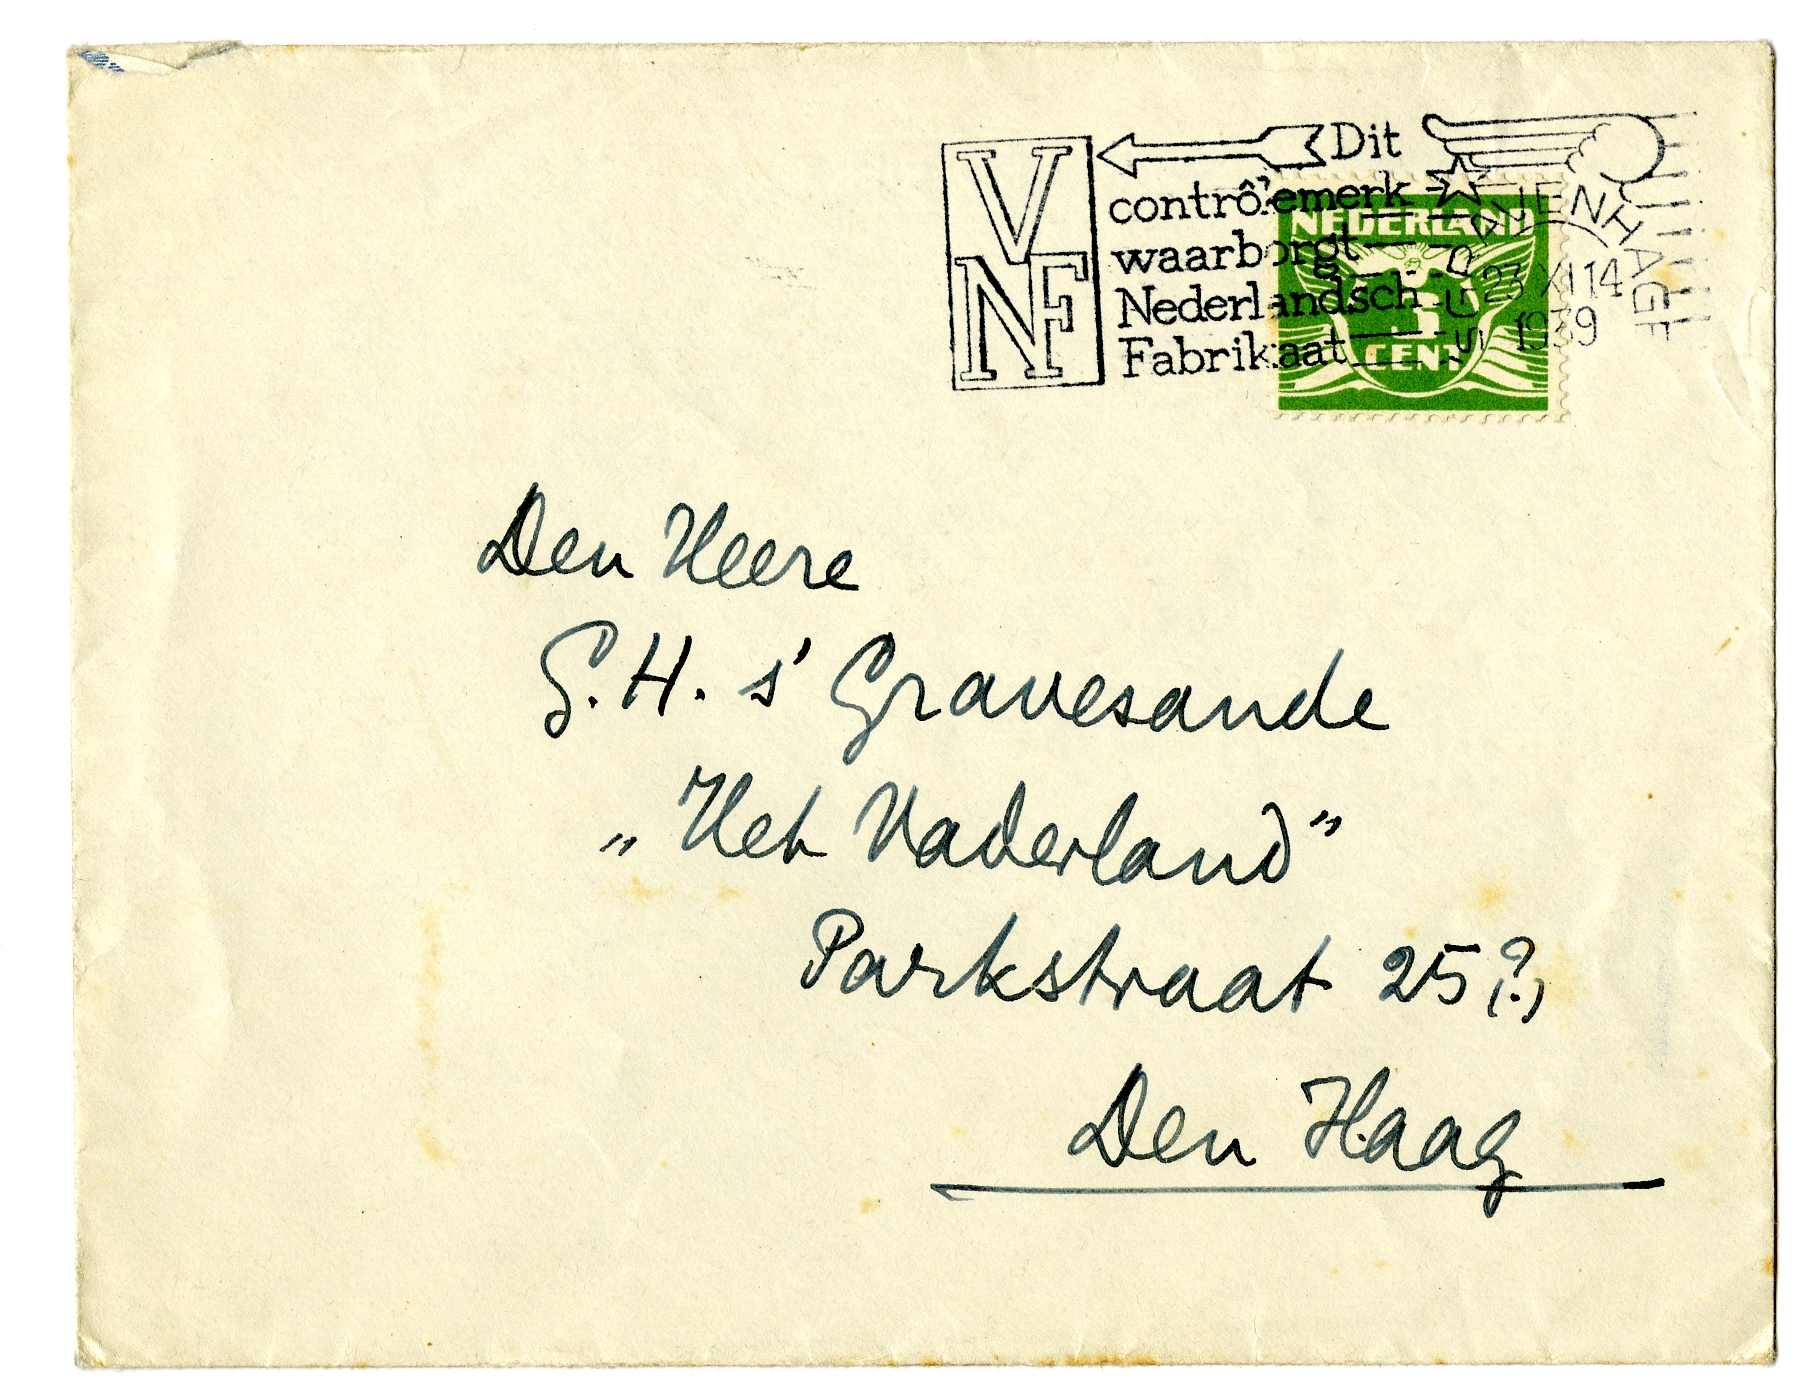 VNF
Dit
contrôlemerk
waarborgt
Nederlandsch
Fabrikaat
'S GRAVENHAGE
23 XI 14
1939
NEDERLAND
3
CENT
Den Heere
G.H. s' Gravesande
„Het Vaderland”
Parkstraat 25(?)
Den Haag